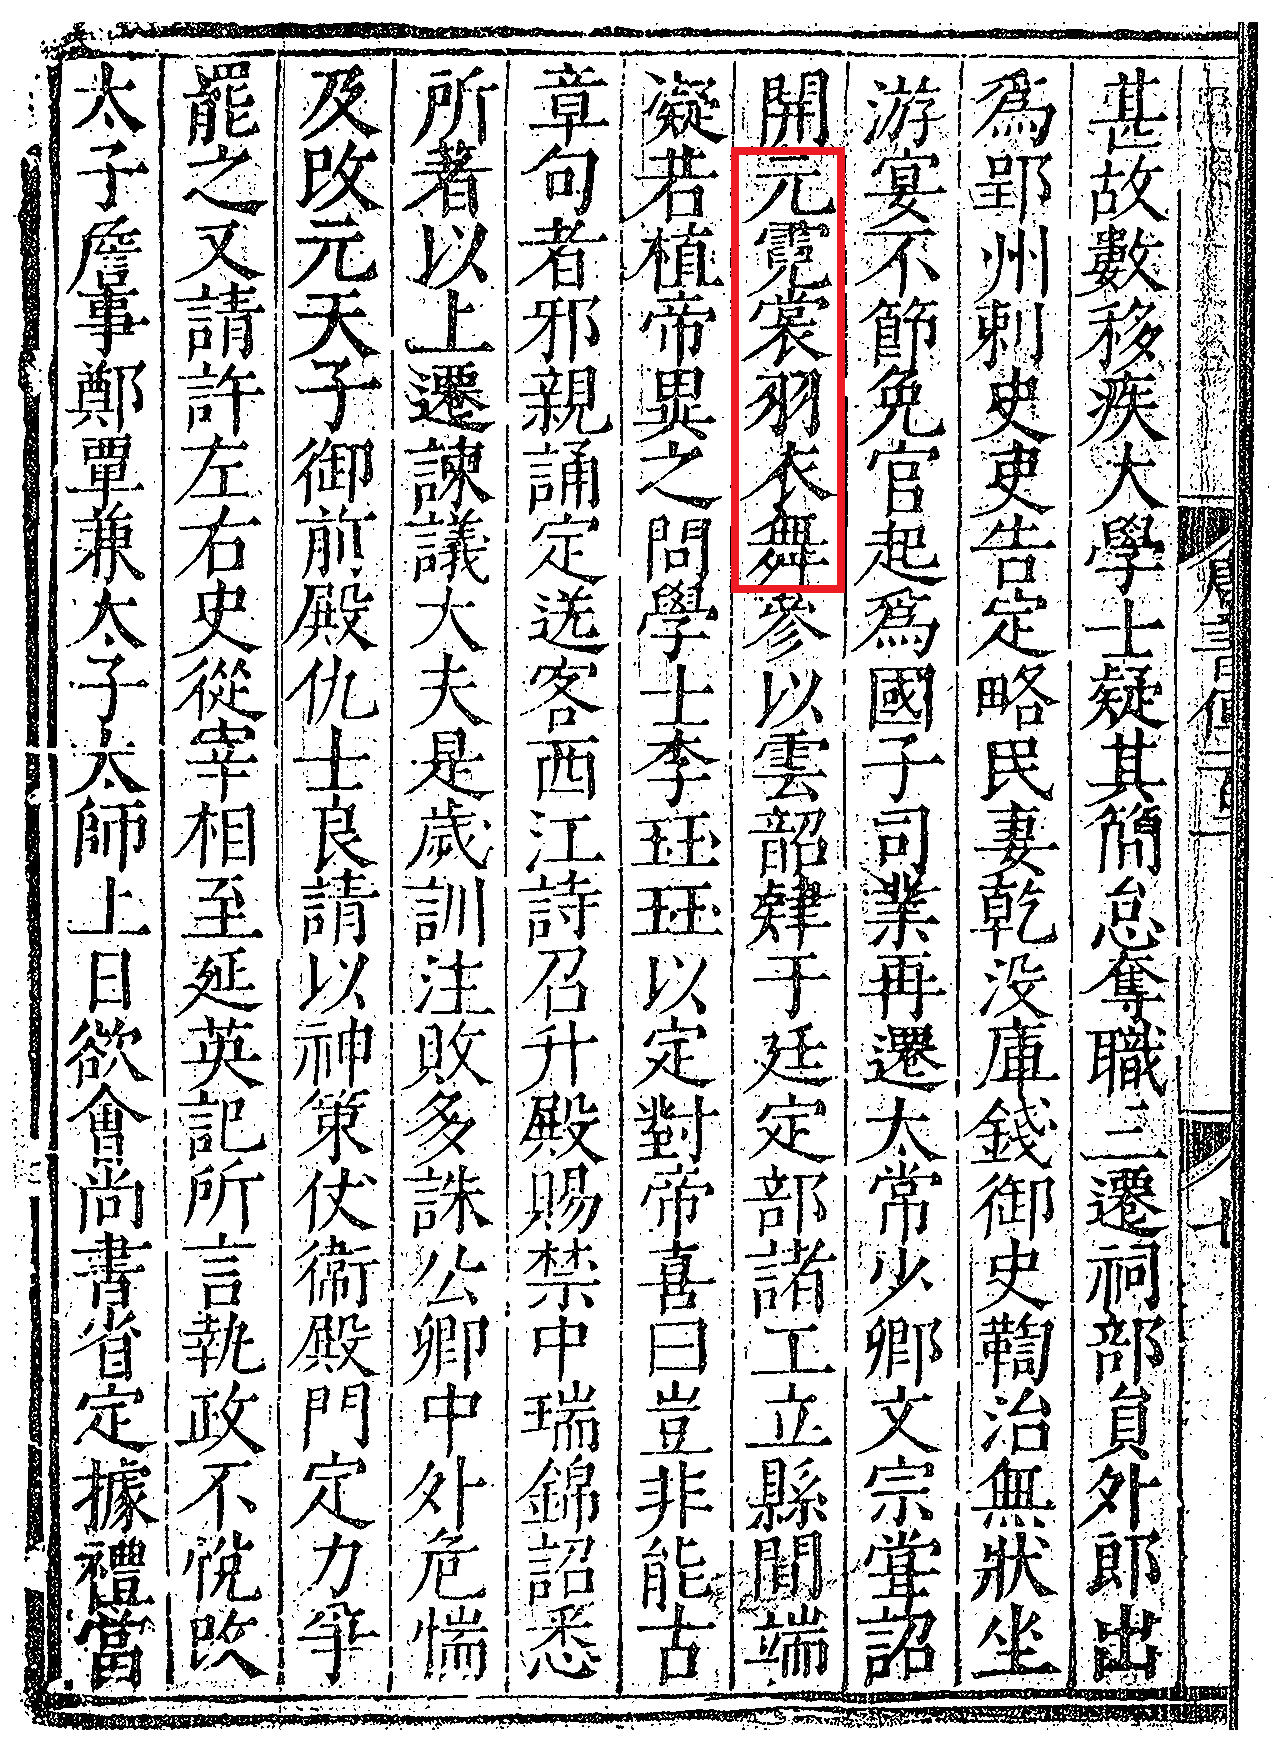 唐書傳一百二
十
甚故數移疾大學士疑其簡怠奪職三遷祠部員外郎出
爲郢州刺史吏告定略民妻乾没庫錢御史鞫治無狀坐
游宴不節免官起爲國子司業再遷太常少卿文宗甞詔
開元霓裳羽衣舞參以雲韶肄于廷定部諸工立縣間端
凝若植帝異之問學士李珏珏以定對帝喜曰豈非能古
章句者邪親誦定送客西江詩召升殿賜禁中瑞錦詔悉
所著以上遷諫議大夫是歲訓注敗多誅公卿中外危惴
及改元天子御前殿仇士良請以神策仗衞殿門定力爭
罷之又請許左右史從宰相至延英記所言執政不悅改
太子詹事鄭覃兼太子太師上日欲會尚書省定據禮當